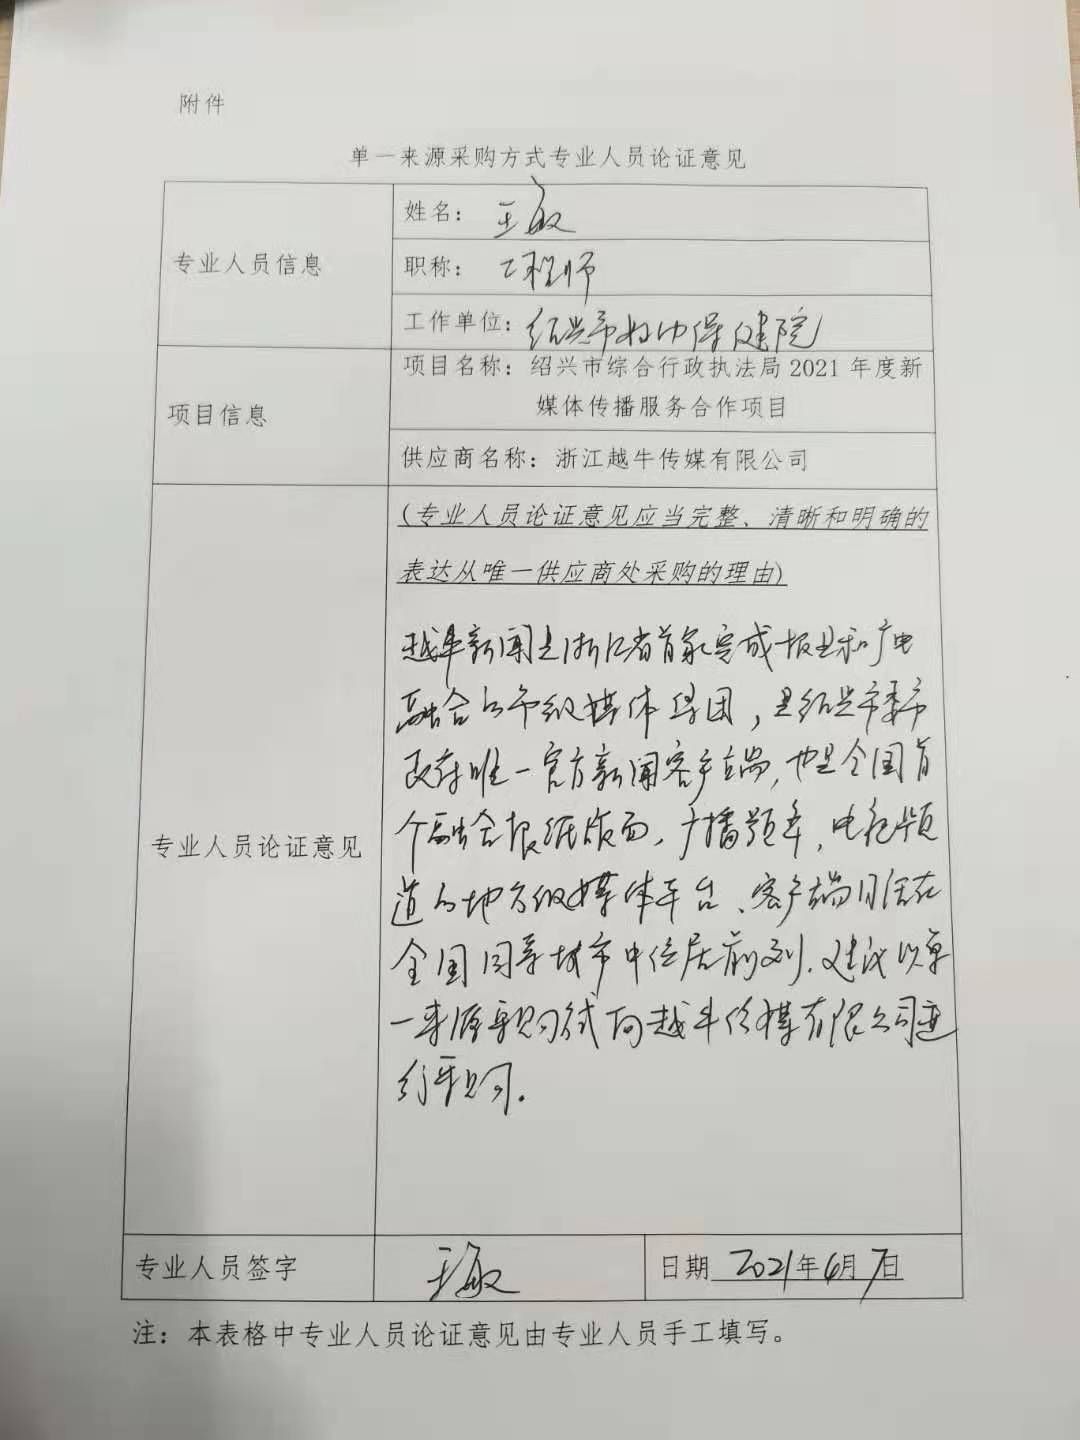 附件
单一来源采购方式专业人员论证意见
专业人员信息
姓名：王敏
职称：工程师
工作单位：绍兴市妇幼保健院
项目信息
项目名称：绍兴市综合行政执法局2021年度新
媒体传播服务合作项目
供应商名称：浙江越牛传媒有限公司
专业人员论证意见
(专业人员论证意见应当完整、清晰和明确的
表达从唯一供应商处采购的理由)
越牛新闻是浙江省首家完成报业和广电
融合的市级媒体集团，是绍兴市委市
政府唯一官方新闻客户端，也是全国首
个融合报纸版面、广播频率，电视频
道的地方级媒体平台、客户端日活在
全国同等城市中位居前列.建议以单
一来源采购方式向越牛传媒有限公司进
行采购.
专业人员签字
王敏
日期 2021年6月7日
注：本表格中专业人员论证意见由专业人员手工填写。